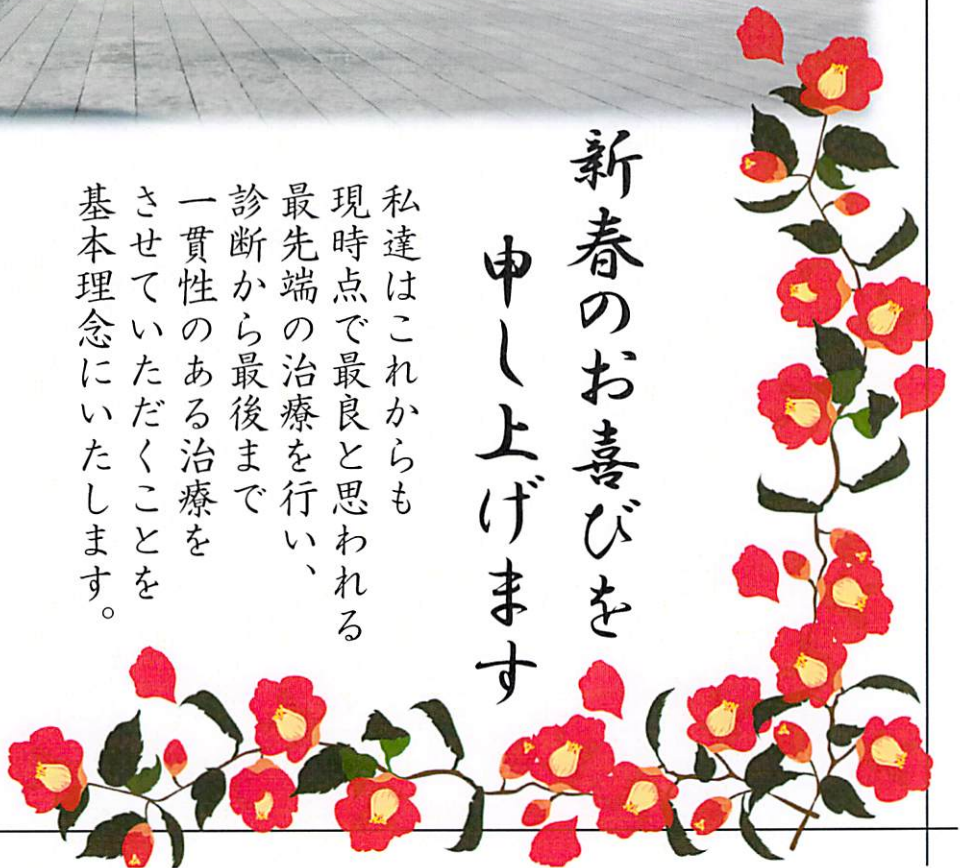 新春のお喜びを
申し上げます
私達はこれからも
現時点で最良と思われる
最先端の治療を行い、
診断から最後まで
一貫性のある治療を
させていただくことを
基本理念にいたします。